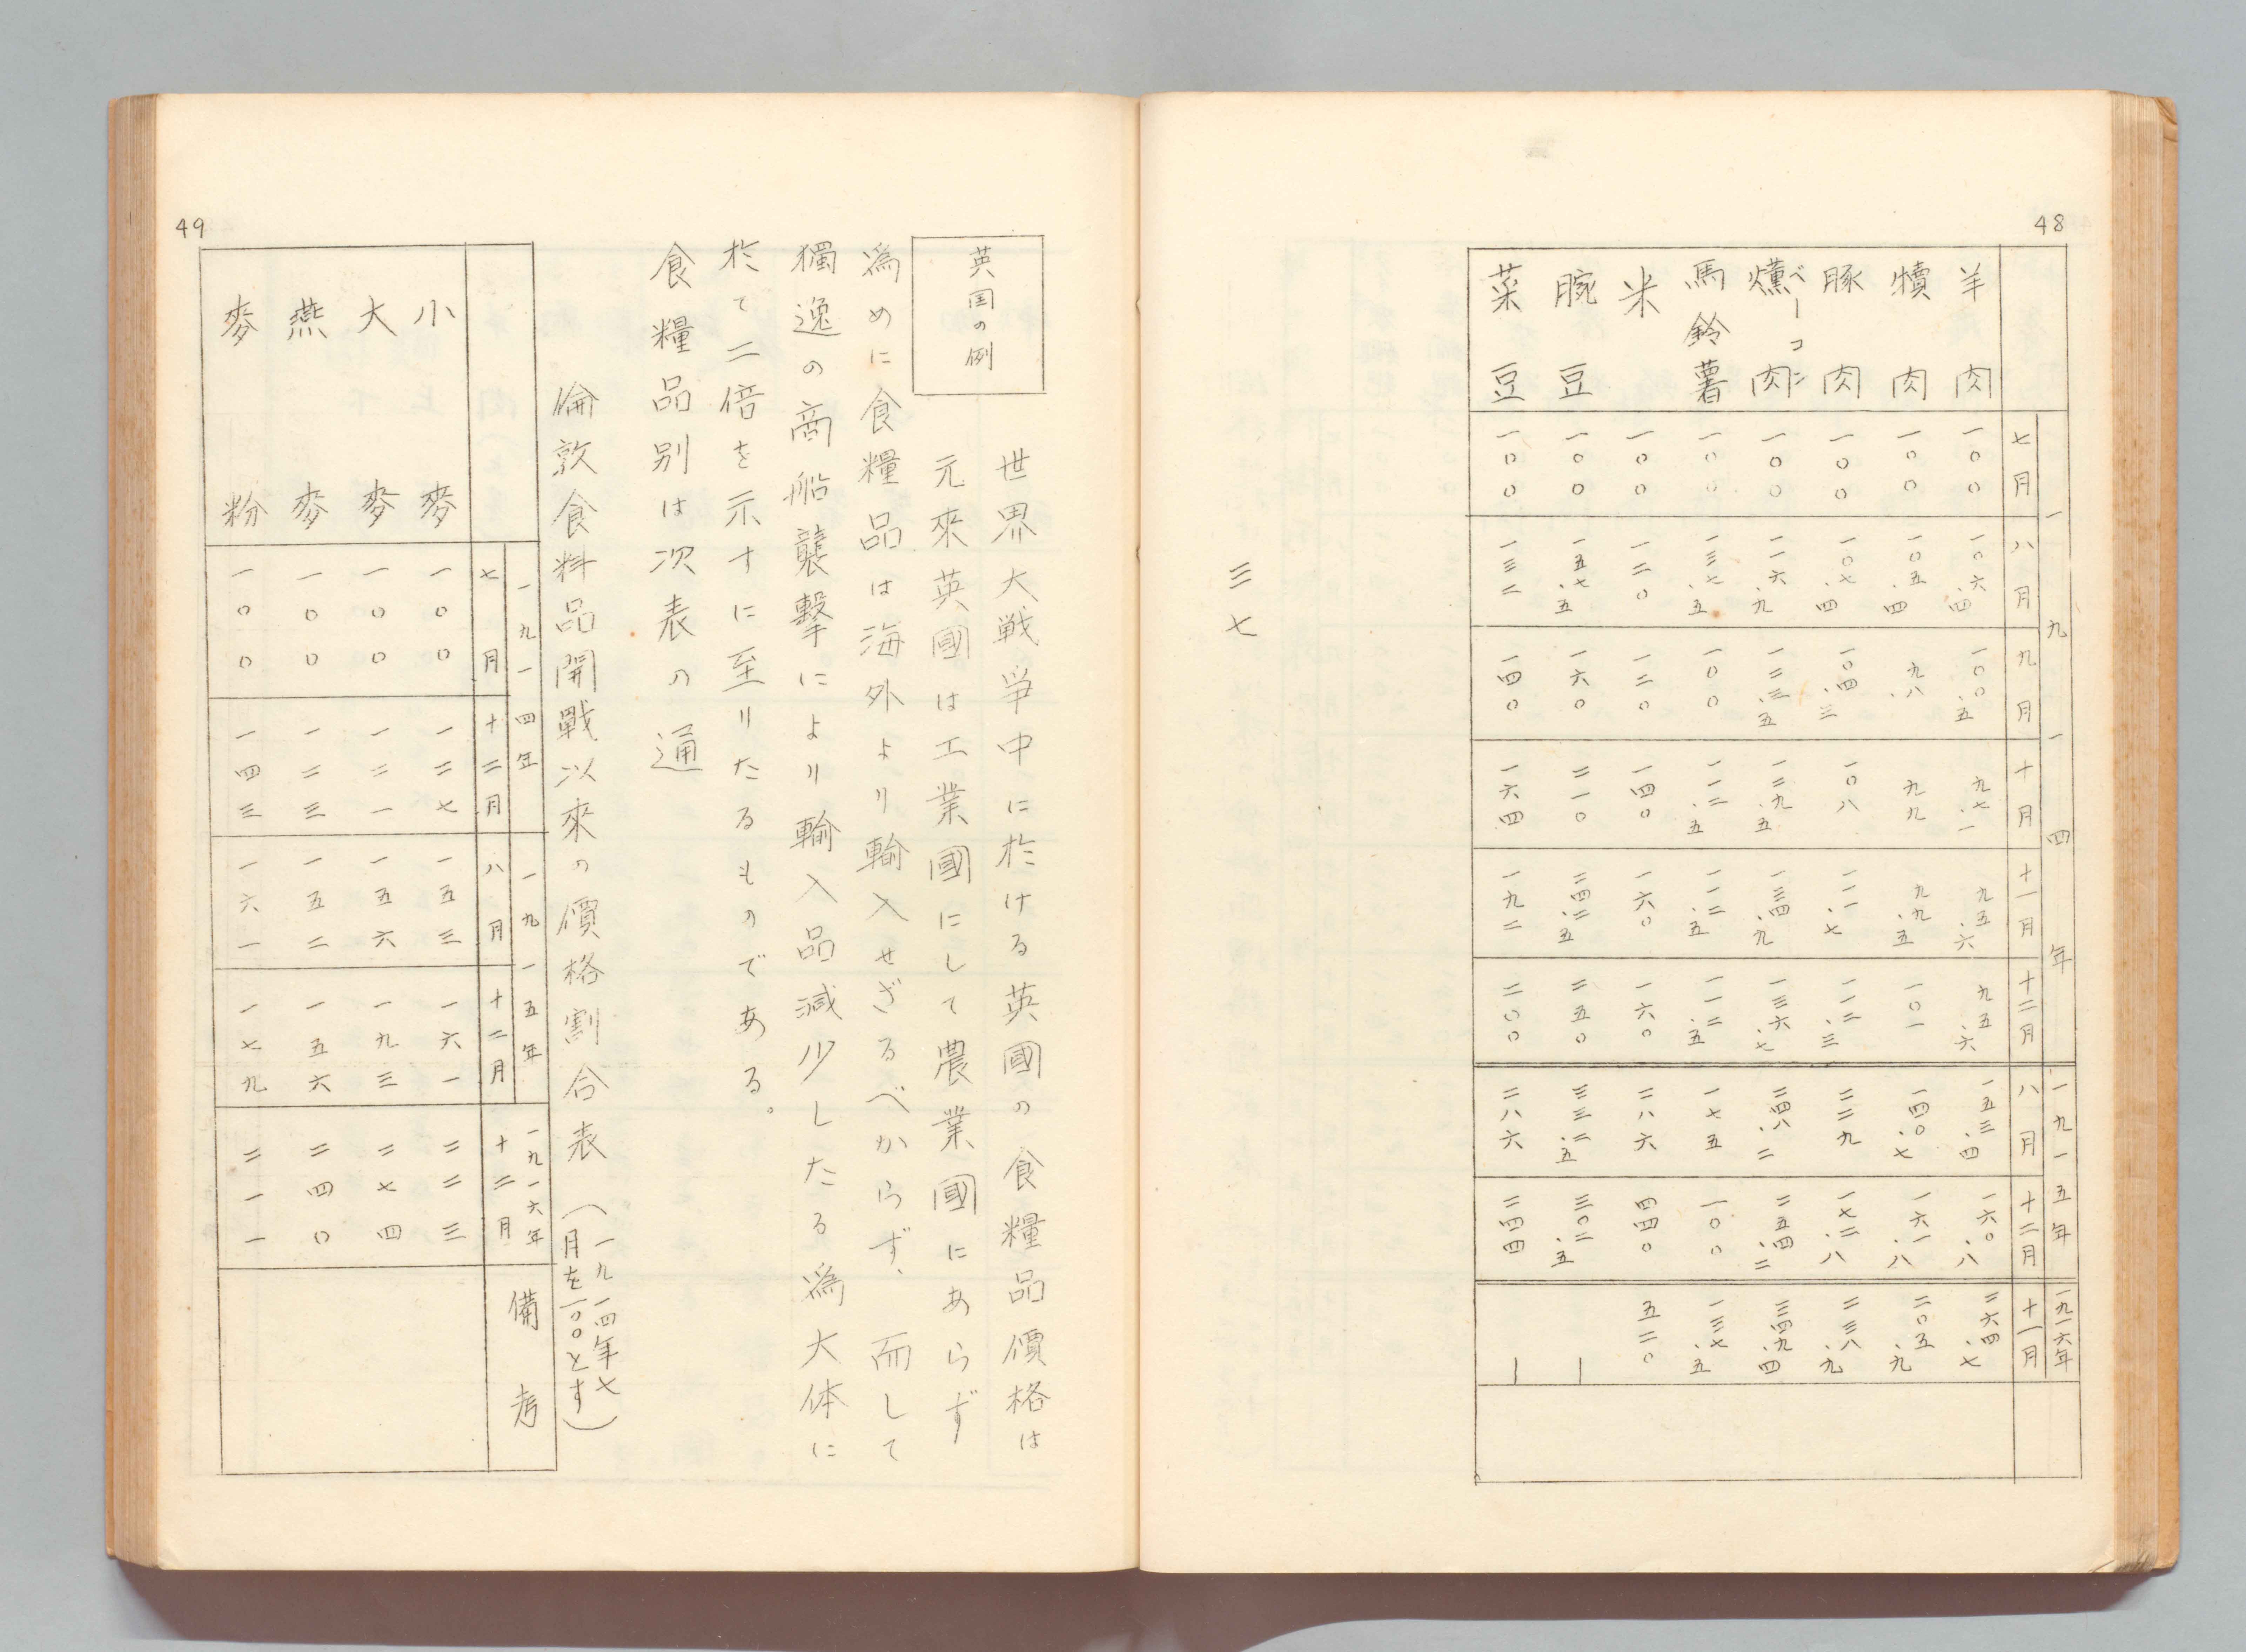 48
一九一四年 一九一五年 一九一六年
七月 八月 九月 十月 十一月 十二月 八月 十二月 十一月
羊肉 一〇〇 一〇六.四 一〇〇.五 九七.一 九五.六 九五.六 一五三.四 一六〇.八 二六四.七
犢肉 一〇〇 一〇五.四 九八 九九 九九.五 一〇一 一四〇.七 一六一.八 二〇五.九
豚肉 一〇〇 一〇七.四 一〇四.三 一〇八 一一一.七 一一二.三 二二九 一七二.八 二三八.九
ベーコン
燻肉 一〇〇 一一六.九 一二三.五 一二九.五 一三四.九 一三六.七 二四八.二 二五四.二 三四九.四
馬鈴薯 一〇〇 一三七.五 一〇〇 一一二.五 一一二.五 一一二.五 一七五 一〇〇 一三七.五
米 一〇〇 一二〇 一二〇 一四〇 一六〇 一六〇 二八六 四四〇 五二〇
腕豆 一〇〇 一五七.五 一六〇 二一〇 二四二.五 二五〇 三三二.五 三〇二.五 ―
菜豆 一〇〇 一三二 一四〇 一六四 一九二 二〇〇 二八六 二四四 ―
三七
49
英国の例
世界大戦爭中に於ける英國の食糧品價格は
元來英國は工業國にして農業國にあらず
爲めに食糧品は海外より輸入せざるべからず、而して
獨逸の商船襲擊により輸入品減少したる爲大体に
於て二倍を示すに至りたるものである。
食糧品別は次表の通
倫敦食料品開戰以來の價格割合表(一九一四年七
月を一〇〇とす)
一九一四年 一九一五年 一九一六年 備考
七月 十二月 八月 十二月 十二月
小麥 一〇〇 一二七 一五三 一六一 二二三
大麥 一〇〇 一二一 一五六 一九三 二七四
燕麥 一〇〇 一二三 一五二 一五六 二四〇
麥粉 一〇〇 一四三 一六一 一七九 二一一